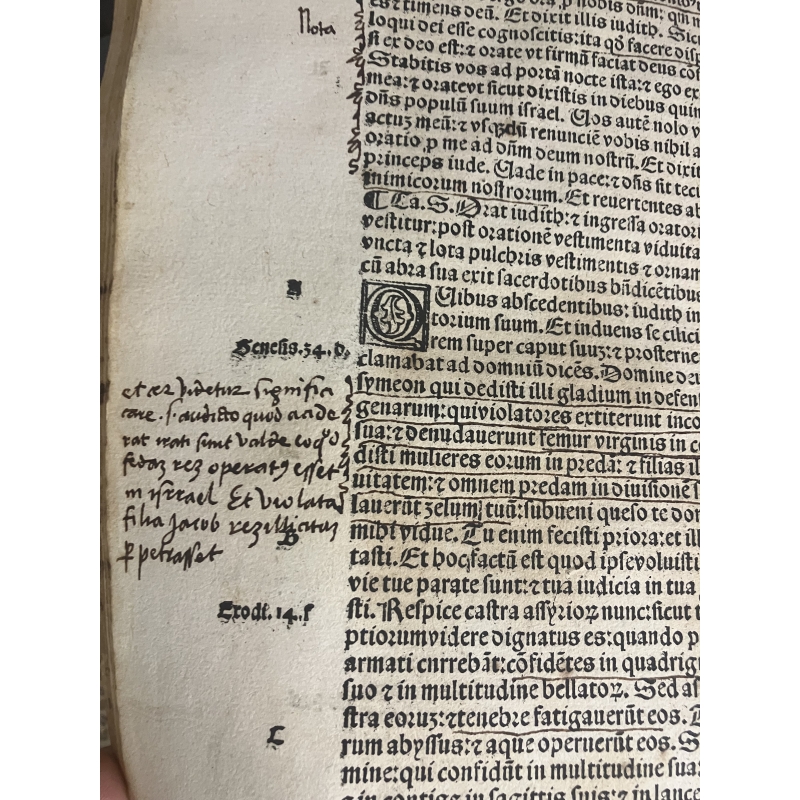 Nota
es ⁊ timens deū. Et dixit illis iudith. Sic
loqui dei esse cognoscitis: ita qđ facere disp
si ex deo est: ⁊ orate vt firmū faciat deus cōs
Stabitis vos ad portā nocte ista: ⁊ ego ex
mea: ⁊ orate vt sicut dixistis in diebus quin
dn̄s populū suum israel. Uos autē nolo v
actuʒ meū: ⁊ vsqʒ dū renunciē vobis nihil a
oratio ꝓ me ad dn̄m deum nostrū. Et dixit
princeps iude. Uade in pace: ⁊ dn̄s sit tecū
inimicorum nostrorum. Et reuertentes ab
¶ Ca. 9. Orat iudith: ⁊ ingressa orator
vestitur: post orationē vestimenta viduita
vncta ⁊ lota pulchris vestimentis ⁊ ornam
cū abra sua exit sacerdotibus bn̄dicētibus
QUibus abscedentibus: iudith in
torium suum. Et induens se cilici
rem super caput suuʒ: ⁊ prosterne
Genesis. 34. d.
clamabat ad dominū dicēs. Domine de
symeon qui dedisti illi gladium in defen
genarum: qui violatores extiterunt inco
sua: ⁊ denudauerunt femur virginis in c
disti mulieres eorum in predā: ⁊ filias il
uitatem: ⁊ omnem predam in diuisionē s
lauerūt zelum tuū: subueni queso te dom
mihi vidue. Tu enim fecisti priora: et ill
tasti. Et hoc factū est quod ipse voluisti
vie tue parate sunt: ⁊ tua iudicia in tua
sti. Respice castra assyrioꝝ nunc: sicut t
ptiorum videre dignatus es: quando p
armati currebāt: cōfidētes in quadrig
suo ⁊ in multitudine bellatoꝝ. Sed as
stra eoruʒ: ⁊ tenebre fatigauerūt eos. T
rum abyssus: ⁊ aque operuerūt eos. S
mine: qui confidūt in multitudine sua:
videtur signifi
care .s. audito quod accide
rat irati sunt valde eo qđ
fedaʒ reʒ operatꝰ esset
in isrrael Et violata
filia Jacob reʒ illicitaʒ
ꝑpetrasset
B
Exodi. 14. f
C